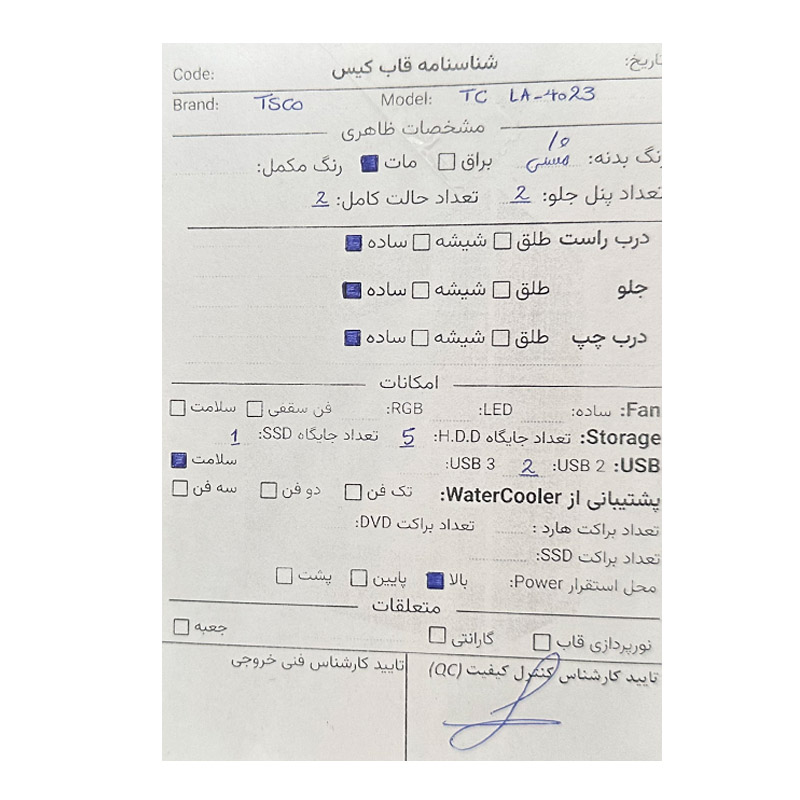 تاریخ: شناسنامه قاب کیس Code:
Brand: TSCO Model: TC LA-4023
مشخصات ظاهری
رنگ بدنه: مشکی براق مات رنگ مکمل:
تعداد پنل جلو: 2 تعداد حالت کامل: 2
درب راست طلق شیشه ساده
جلو طلق شیشه ساده
درب چپ طلق شیشه ساده
امکانات
Fan: ساده: LED: RGB: فن سقفی سلامت
Storage: تعداد جایگاه H.D.D: 5 تعداد جایگاه SSD: 1
USB: USB 2: 2 USB 3: سلامت
پشتیبانی از WaterCooler: تک فن دو فن سه فن
تعداد براکت هارد : تعداد براکت DVD:
تعداد براکت SSD:
محل استقرار Power: بالا پایین پشت
متعلقات
نورپردازی قاب گارانتی جعبه
تایید کارشناس کنترل کیفیت (QC) تایید کارشناس فنی خروجی